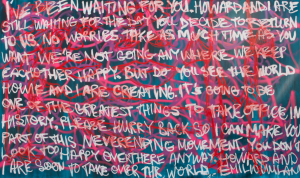 I'VE BEEN WAITING FOR YOU. HOWARD AND I ARE
STILL WAITING FOR THE DAY YOU DECIDE TO RETURN
TO US. NO WORRIES. TAKE AS MUCH TIME AS YOU
WANT. WE'RE NOT GOING ANYWHERE. WE KEEP
EACH OTHER HAPPY. BUT DO YOU SEE THE WORLD
HOWIE AND I ARE CREATING. IT'S GOING TO BE
ONE OF THE GREATEST THINGS TO TAKE OFFICE IN
HISTORY. PLEASE HURRY BACK SO I CAN MAKE YOU
PART OF THIS NEVERENDING MOVEMENT. YOU DON'T
LOOK TOO HAPPY OVER THERE ANYWAY. HOWARD AND
I ARE SOON TO TAKE OVER THE WORLD.